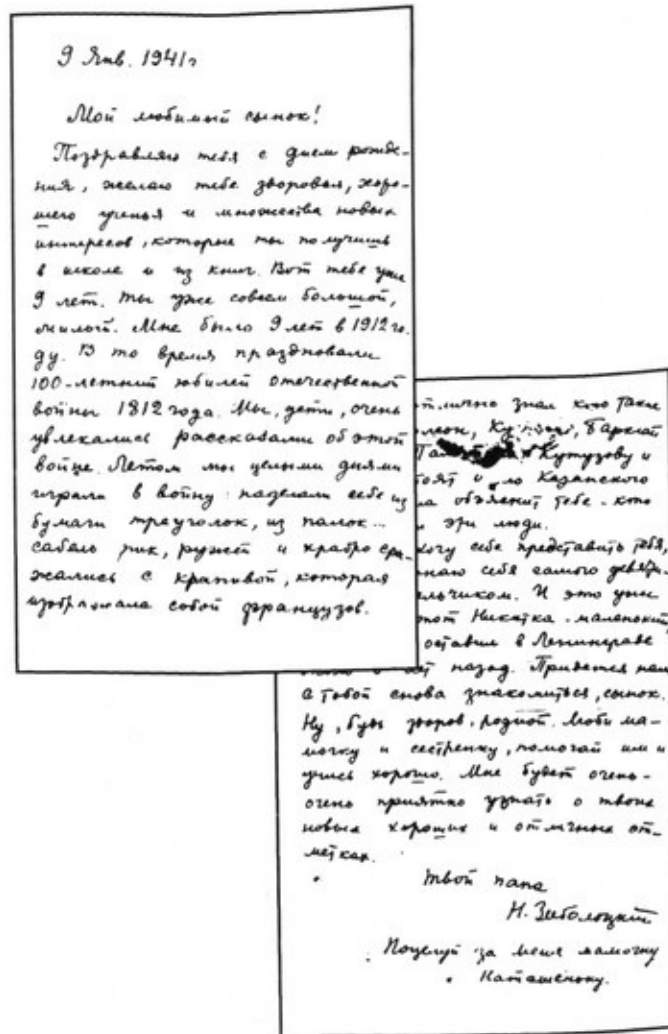 9 Янв. 1941г
Мой любимый сынок!
Поздравляю тебя с днем рожде-
ния, желаю тебе здоровья, хоро-
шего ученья и множества новых
интересов, которые ты получишь
в школе и из книг. Вот тебе уже
9 лет. Ты уже совсем большой,
милой. Мне было 9 лет в 1912 го-
ду. В то время праздновали
100-летний юбилей отечественной
войны 1812 года. Мы, дети, очень
увлекались рассказами об этой
войне. Летом мы целыми днями
играли в войну: наделали себе из
бумаги треуголок, из палок...
сабель пик, ружей и храбро сра-
жались с крапивой, которая
изображала собой французов.
отлично знал кто такие
леон, Барклай
Кутузову и
тоят Казанского
ма объяснит тебе - кто
эти люди.
хочу себе представить тебя,
наю себя самого девяти-
льчиком. И это уже
тот Никитка-маленький
оставил в Ленинграде
лет назад. Придется нам
с тобой снова знакомиться, сынок.
Ну, будь здоров, родной. Люби ма-
мочку и сестренку, помогай им и
учись хорошо. Мне будет очень-
очень приятно узнать о твоих
новых хороших и отличных от-
метках.
Твой папа
Н. Заболоцкий
Поцелуй за меня мамочку
Наташеньку.